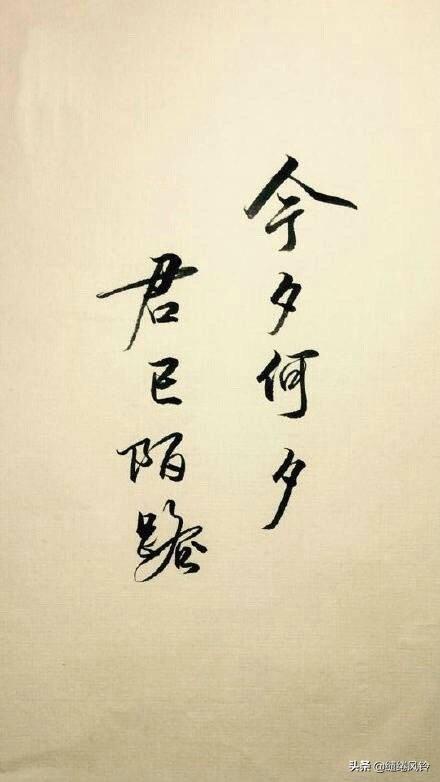 今夕何夕
君已陌路
头条 @缱绻风铃